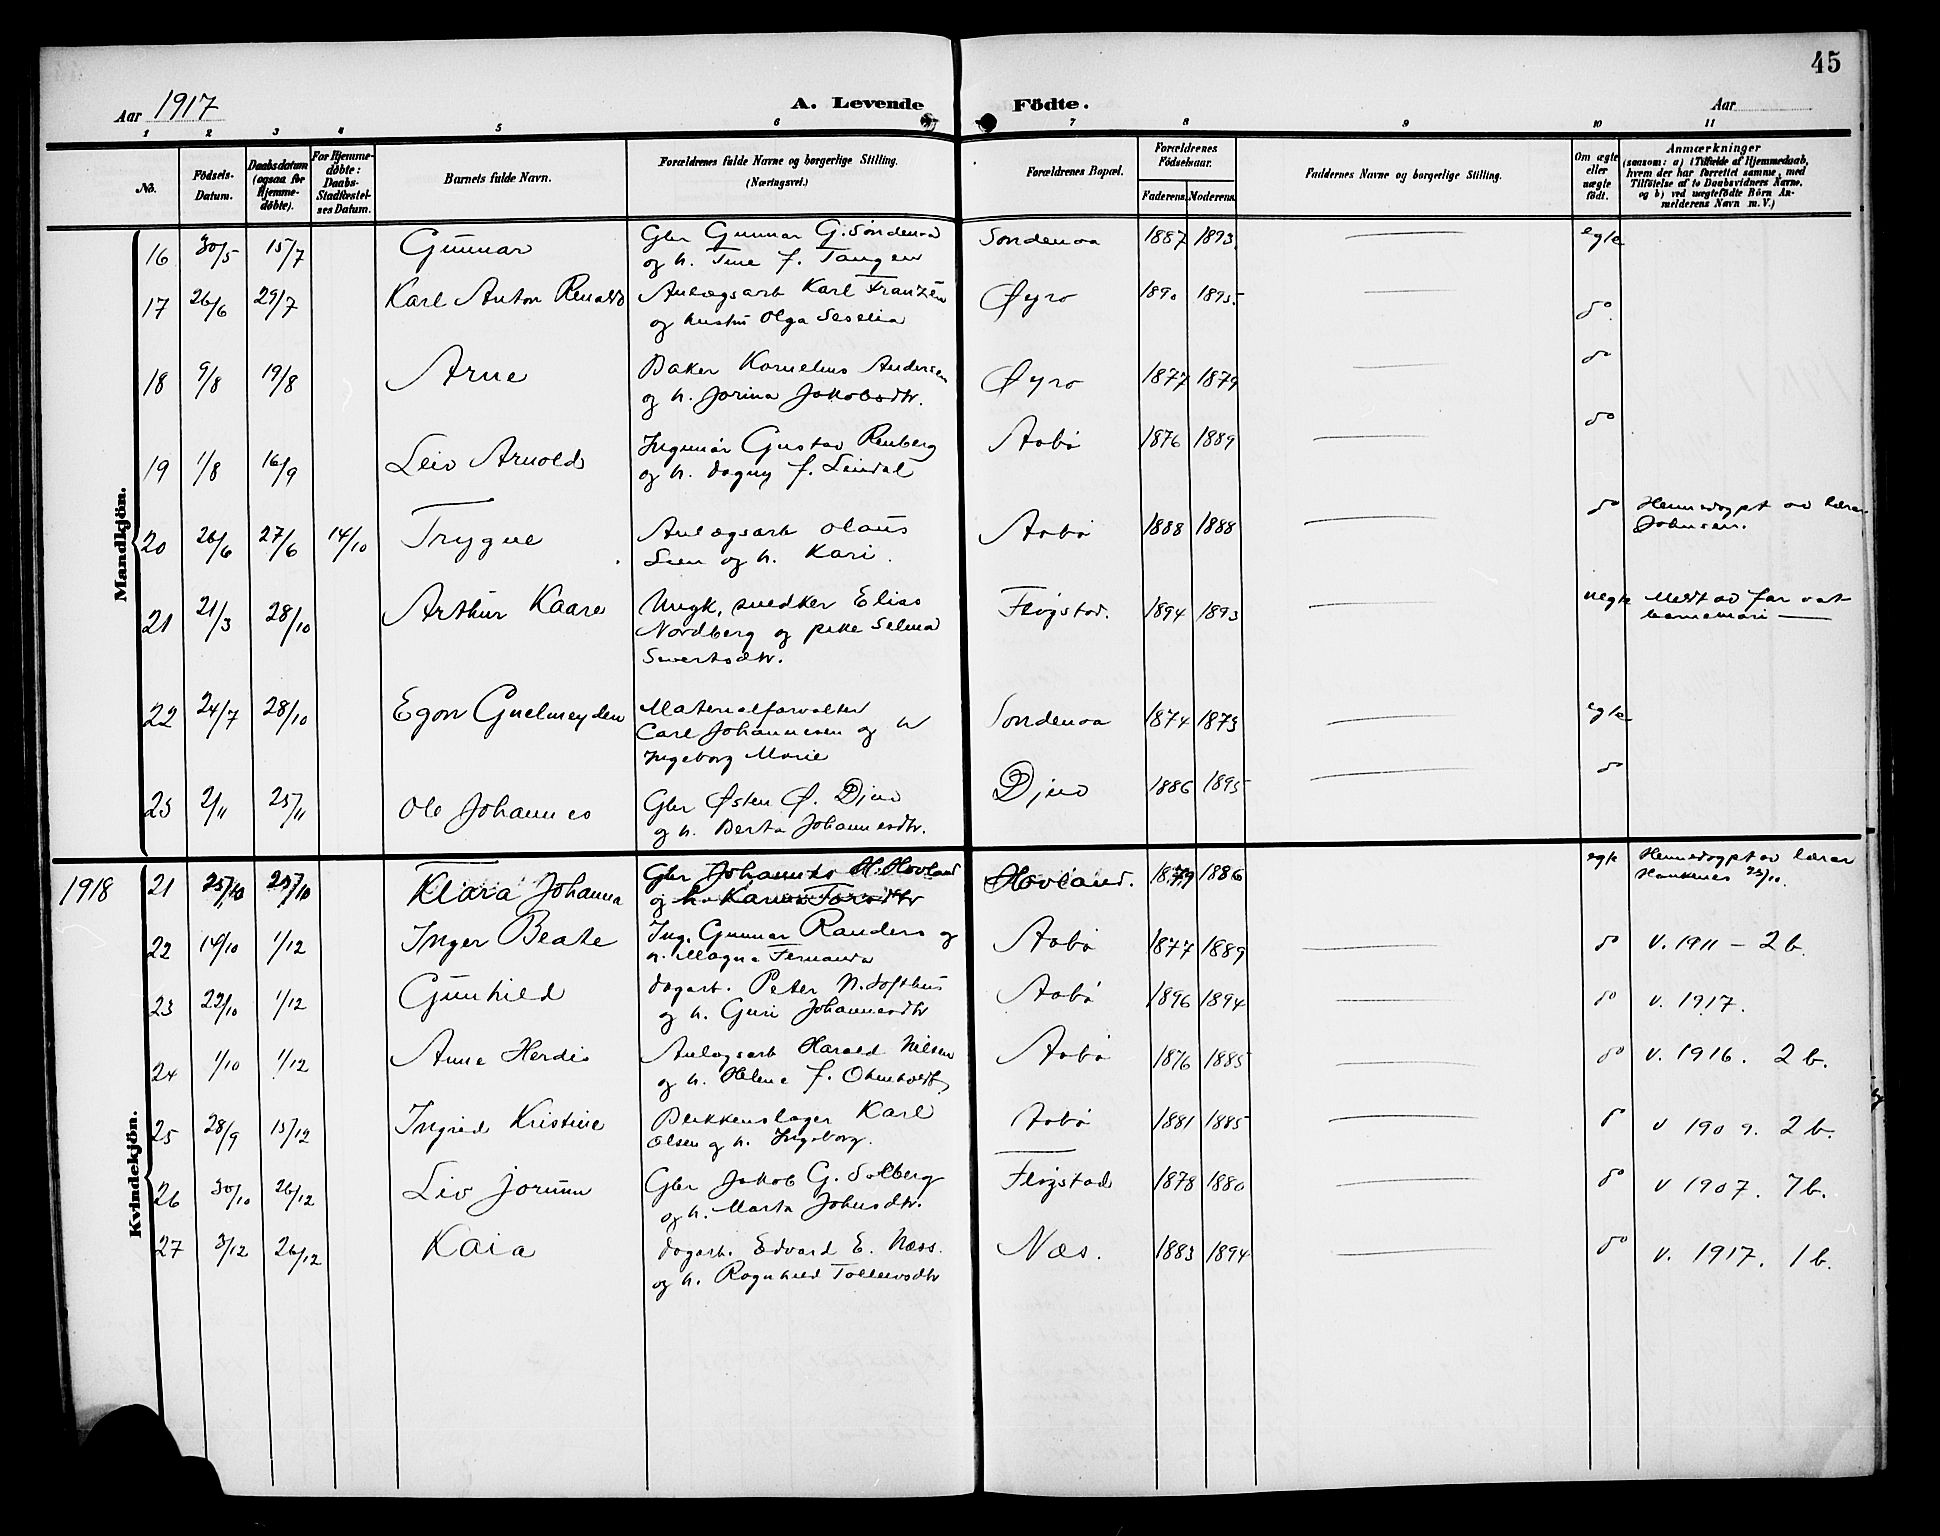 45
Aar 1917
A. Levende Födte.
Aar
1 2 3 4 5 6 7 8 9 10 11
No.
Födsels-Datum.
Daabsdatum (ogsaa for Hjemme-döbte).
For Hjemme-döbte: Daabs-Stadfæstel-ses Datum.
Barnets fulde Navn.
Forældrenes fulde Navne og borgerlige Stilling. (Næringsvei.)
Forældrenes Bopæl.
Forældrenes Födselsaar.
Faderens. Moderens.
Faddernes Navne og borgerlige Stilling.
Om ægte eller uægte födt.
Anmærkninger
(saasom: a) i Tilfælde af Hjemmedaab, hvem der har forrettet samme, med Tilföielse af to Daabsvidners Navne, og b) ved uægtefödte Börn An-melderens Navn m. V.)
Mandkjön.
16 30/5 15/7 Gunnar Gbr Gunnar G. Söndenaa Sondenaa 1887 1893 egte
og h. Tine f. Tangen
17 26/6 29/7 Karl Anton Renald Anlægsarb Karl Franzén Øyro 1890 1895 do
og hustru Olga Seselia
18 9/8 19/8 Arne Baker Kornelius Andersen Øyro 1877 1879 do
og h. Jorina Jakobsdtr.
19 1/8 16/9 Leiv Arnold Ingeniør Gustav Renberg Aabø 1876 1889 do
og h. Dagny f. Leindal
20 26/6 27/6 14/10 Trygve Anlægsarb Olaus Aabø 1888 1888 do Hemedøypt av lærar
Lien og h. Kari. Johnsen.
21 21/3 28/10 Arthur Kaare Ungk. snedker Elias Fløgstad. 1894 1893 uegte Meldt av far at
Nordberg og pike Selma
Sivertsdtr.
22 24/7 28/10 Egon Guelmeyden Materialforvalter Sondenaa 1874 1873 egte
Carl Johannesen og h
Ingeborg Marie
23 2/11 25/11 Ole Johannes Gbr Østen Ø. Djuv Djuv 1886 1895 do
og h. Berta Johannesdtr.
Kvindekjön.
1918 21 25/10 25/10 Klara Johanna Gbr Johannes H. Hovland Hovland. 1879 1886 egte Hemedøypt av lærar
og h. Karen Torsdtr
22 14/10 1/12 Inger Beate Ing. Gunnar Randers og Aabø 1877 1889 do v. 1911 – 2 b.
h. Magna Fernanda
23 22/10 1/12 Gunhild Dagarb. Peter N. Lofthus Aabø 1896 1894 do v. 1917.
og h. Guri Johannesdtr
24 1/10 1/12 Anna Herdis Anlægsarb Harald Nilsen Aabø 1876 1885 do v. 1916. 2 b.
og h. Helene f.
25 28/9 15/12 Ingrid Kristine Blikkenslager Karl Aabø 1881 1885 do v 1909. 2 b.
Olsen og h. Ingeborg.
26 30/10 26/12 Liv Jorunn Gbr Jakob G. Solberg Fløgstad 1878 1880 do v 1907. 7 b.
og h. Marta Johnsdtr.
27 3/12 26/12 Kaia Dagarb. Edvard E. Næss. Næs. 1883 1894 do v. 1917. 1 b.
og h. Ragnhild Tollevsdtr